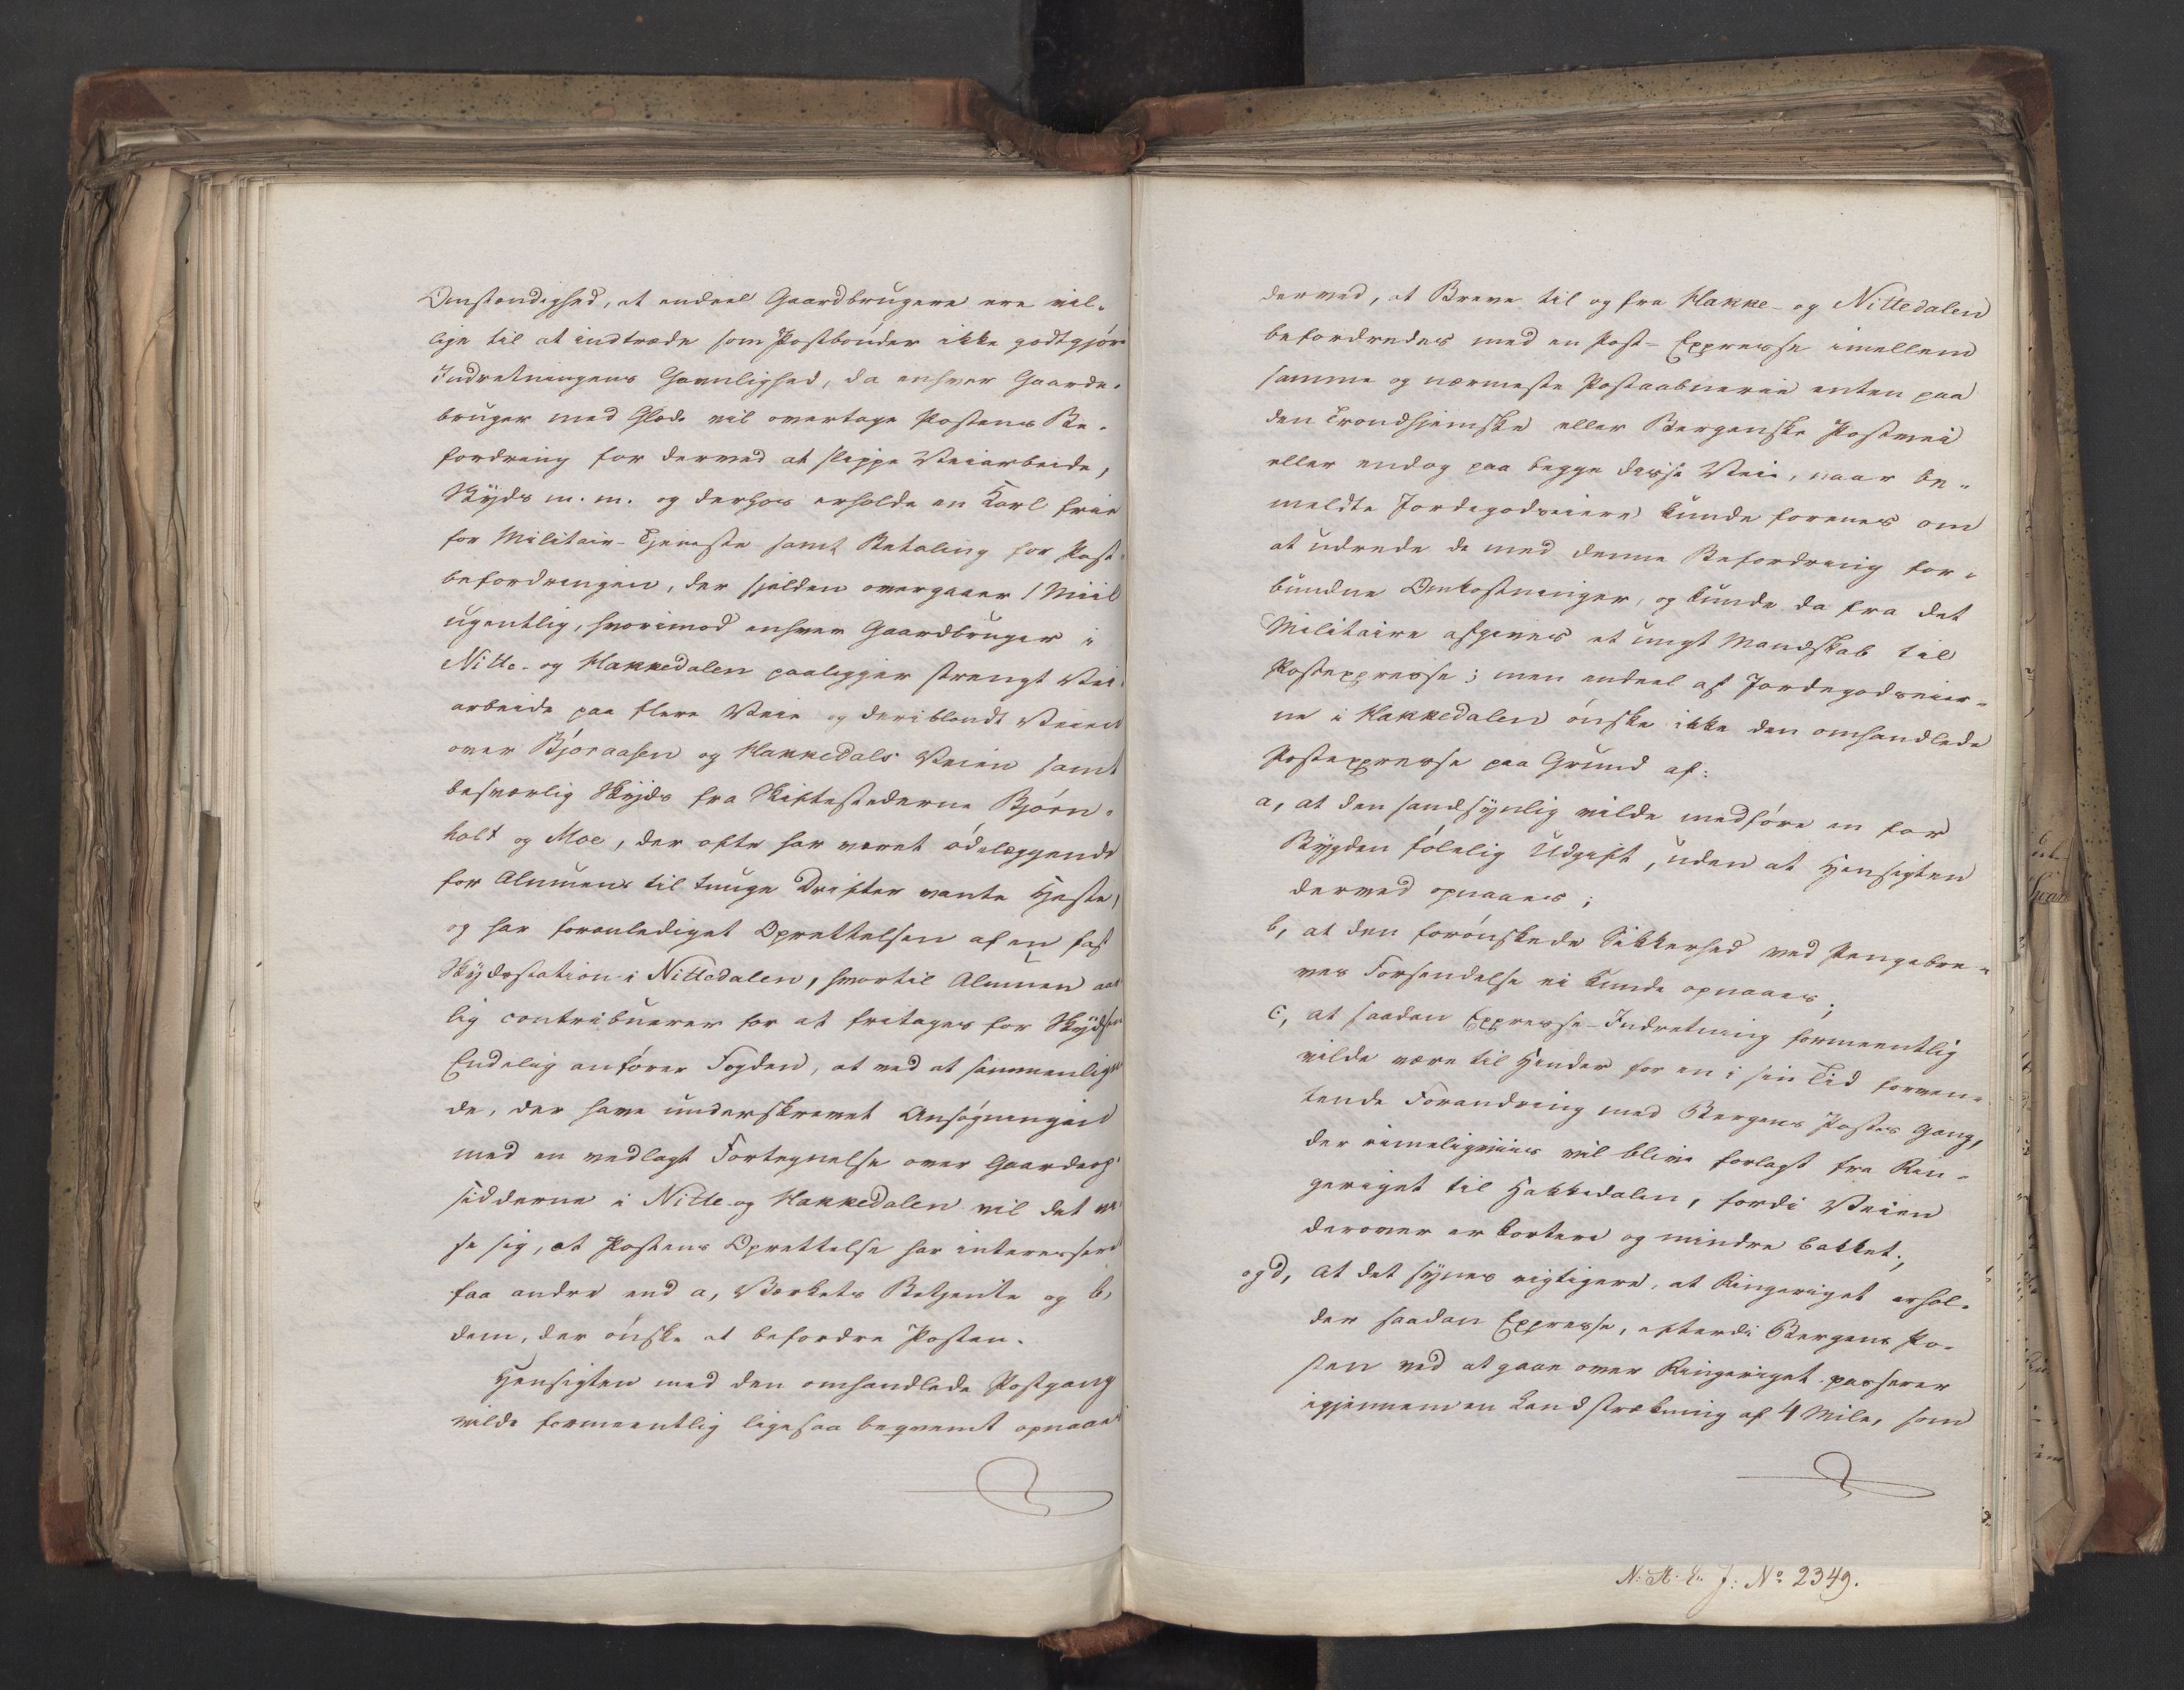 Omstændighed, at endeel Gaardbrugere ere vil-
lige til at indtræde som Postbønder ikke godtgjør
Indretningens Gavnlighed, da enhver Gaard-
bruger med Glæde vil overtage Postens Be-
fordring for derved at slippe Veiarbeide,
Skyds m. m. og derhos erholde en Karl frie
for Militair-Tjeneste samt Betaling for Post-
befordringen, der sjelden overgaaer 1 Miil
ugentlig, hvorimod enhver Gaardbruger i
Nitte- og Hakkedalen paaligger strengt Vei-
arbeide paa flere Veie og deriblandt Veien
over Bjøraasen og Hakkedals Veien samt
besværlig Skyds fra Skiftestederne Bjørn-
holt og Moe, der ofte har været ødelæggende
for Almuens til tunge Drifter vante Heste,
og har foranlediget Oprettelsen af en fast
Skydsstation i Nittedalen, hvortil Almuen aar-
lig contribuerer for at fritages for Skydsen
Endelig anfører Fogden, at ved at sammenligne
de, der have underskrevet Ansøgningen
med en vedlagt Fortegnelse over Gaardop-
sidderne i Nitte- og Hakkedalen vil det vi-
se sig, at Postens Oprettelse har interesseret
faa andre end a, Værkets Betjente og b,
dem, der ønske at befordre Posten.
Hensigten med den omhandlede Postgang
vilde formeentlig ligesaa beqvemt opnaaes
derved, at Breve til og fra Hakke- og Nittedalen
befordredes med en Post-Expresse imellem
samme og nærmeste Postaabnerie enten paa
den Trondhjemske eller Bergenske Postvei
eller endog paa begge disse Veie, naar be-
meldte Jordegodseiere kunde forenes om
at udrede de med denne Befordring for-
bundne Omkostninger, og kunde da fra det
Militaire afgives et ungt Mandskab til
Postexpresse; men endeel af Jordegodseier-
ne i Hakkedalen ønske ikke den omhandlede
Postexpresse paa Grund af:
a, at den sandsynlig vilde medføre en for
Bygden følelig Udgift, uden at Hensigten
derved opnaaes;
b, at den forønskede Sikkerhed ved Pengebre-
ves Forsendelse ei kunde opnaaes;
c, at saadan Expresse-Indretning formeentlig
vilde være til Hinder for en i sin Tid forven-
tende Forandring med Bergens Postes Gang,
der rimeligviis vil blive forlagt fra Rin-
geriget til Hakkedalen, fordi Veien
derover er kortere og mindre bakket;
og d, at det synes vigtigere, at Ringeriget erhol-
der saadan Expresse, efterdi Bergens Po-
sten ved at gaae over Ringeriget passerer
igjennem en Landstrækning af 4 Mile, som
N: R: L: J: No 2349.